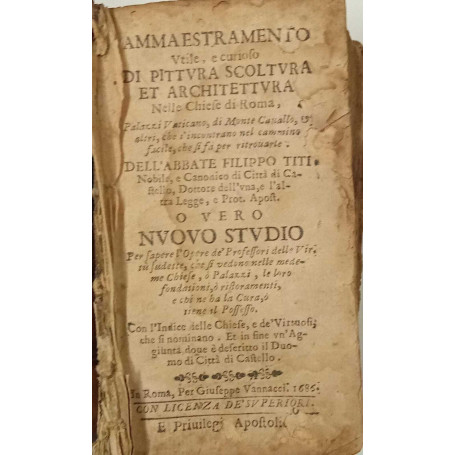 AMMAESTRAMENTO
Vtile, e curioso
DI PITTVRA SCOLTVRA
ET ARCHITETTVRA
Nelle Chiese di Roma,
Palazzi Vaticano, di Monte Cauallo, &
altri, che s'incontrano nel cammino
facile, che si fa per ritrouarle.
DELL'ABBATE FILIPPO TITI
Nobile, e Canonico di Città di Ca-
stello, Dottore dell'vna, e l'al-
tra Legge, e Prot. Apost.
O VERO
NVOVO STVDIO
Per sapere l'Opere de' Professori delle Vir-
tù sudette, che si vedono nelle mede-
me Chiese, ò Palazzi, le loro
fondationi, ò ristoramenti,
e chi ne ha la Cura, ò
tiene il Possesso.
Con l'Indice delle Chiese, e de' Virtuosi,
che si nominano. Et in fine vn'Ag-
giunta doue è descritto il Duo-
mo di Città di Castello.
In Roma, Per Giuseppe Vannacci. 1686.
CON LICENZA DE' SVPERIORI.
E Priuilegi Apostoli